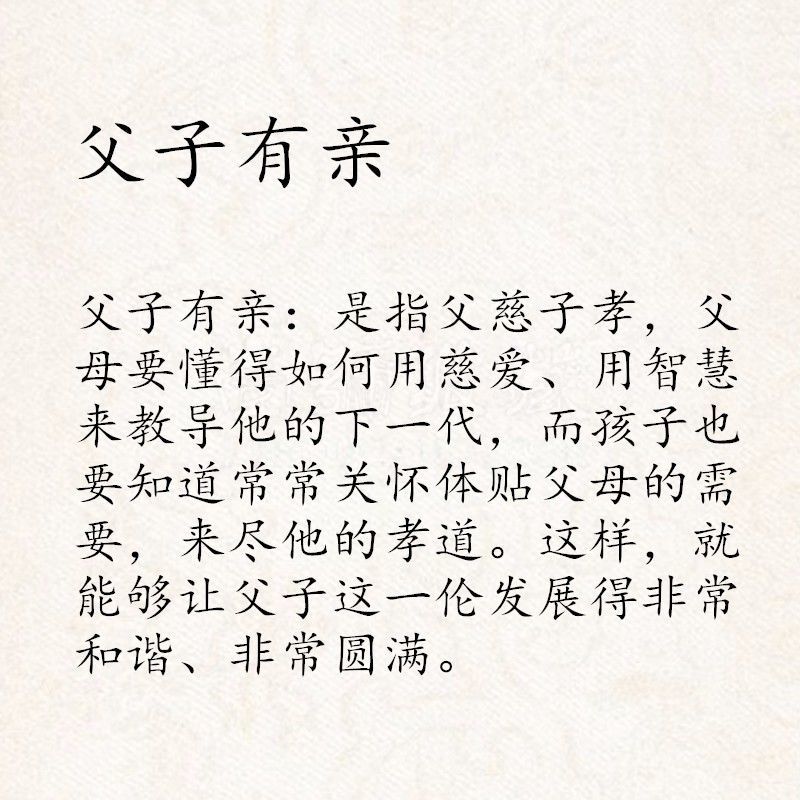 父子有亲
父子有亲：是指父慈子孝，父
母要懂得如何用慈爱、用智慧
来教导他的下一代，而孩子也
要知道常常关怀体贴父母的需
要，来尽他的孝道。这样，就
能够让父子这一伦发展得非常
和谐、非常圆满。